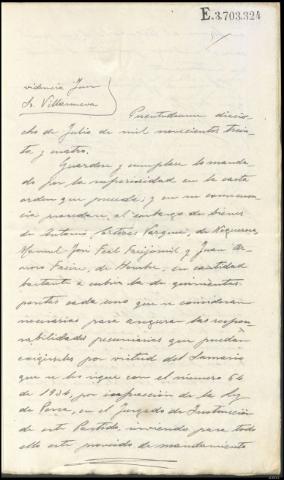 E.3.703.324
videncia Juez
Sr. Villanueva
Puentedeume diecio-
cho de Julio de mil novecientos trein-
ta y cuatro.
Guardese y cumplase lo manda-
do por la superioridad en la carta
orden que precede; y en su consecuen-
cia procedase al embargo de bienes
de Antonio, de Nogueirosa,
Manuel José Feal Freijomil y Juan
Freire, de Hombre, en cantidad
bastante a cubrir la de quinientas
pesetas cada uno que se consideran
necesarias para asegurar las respon-
sabilidades pecuniarias que puedan
exigirseles por virtud del sumario
que se les sigue con el número 64
de 1934, por infracción de la ley
de Pesca, en el Juzgado de Instrucción
de este Partido, sirviendo para todo
ello este proveido de mandamiento